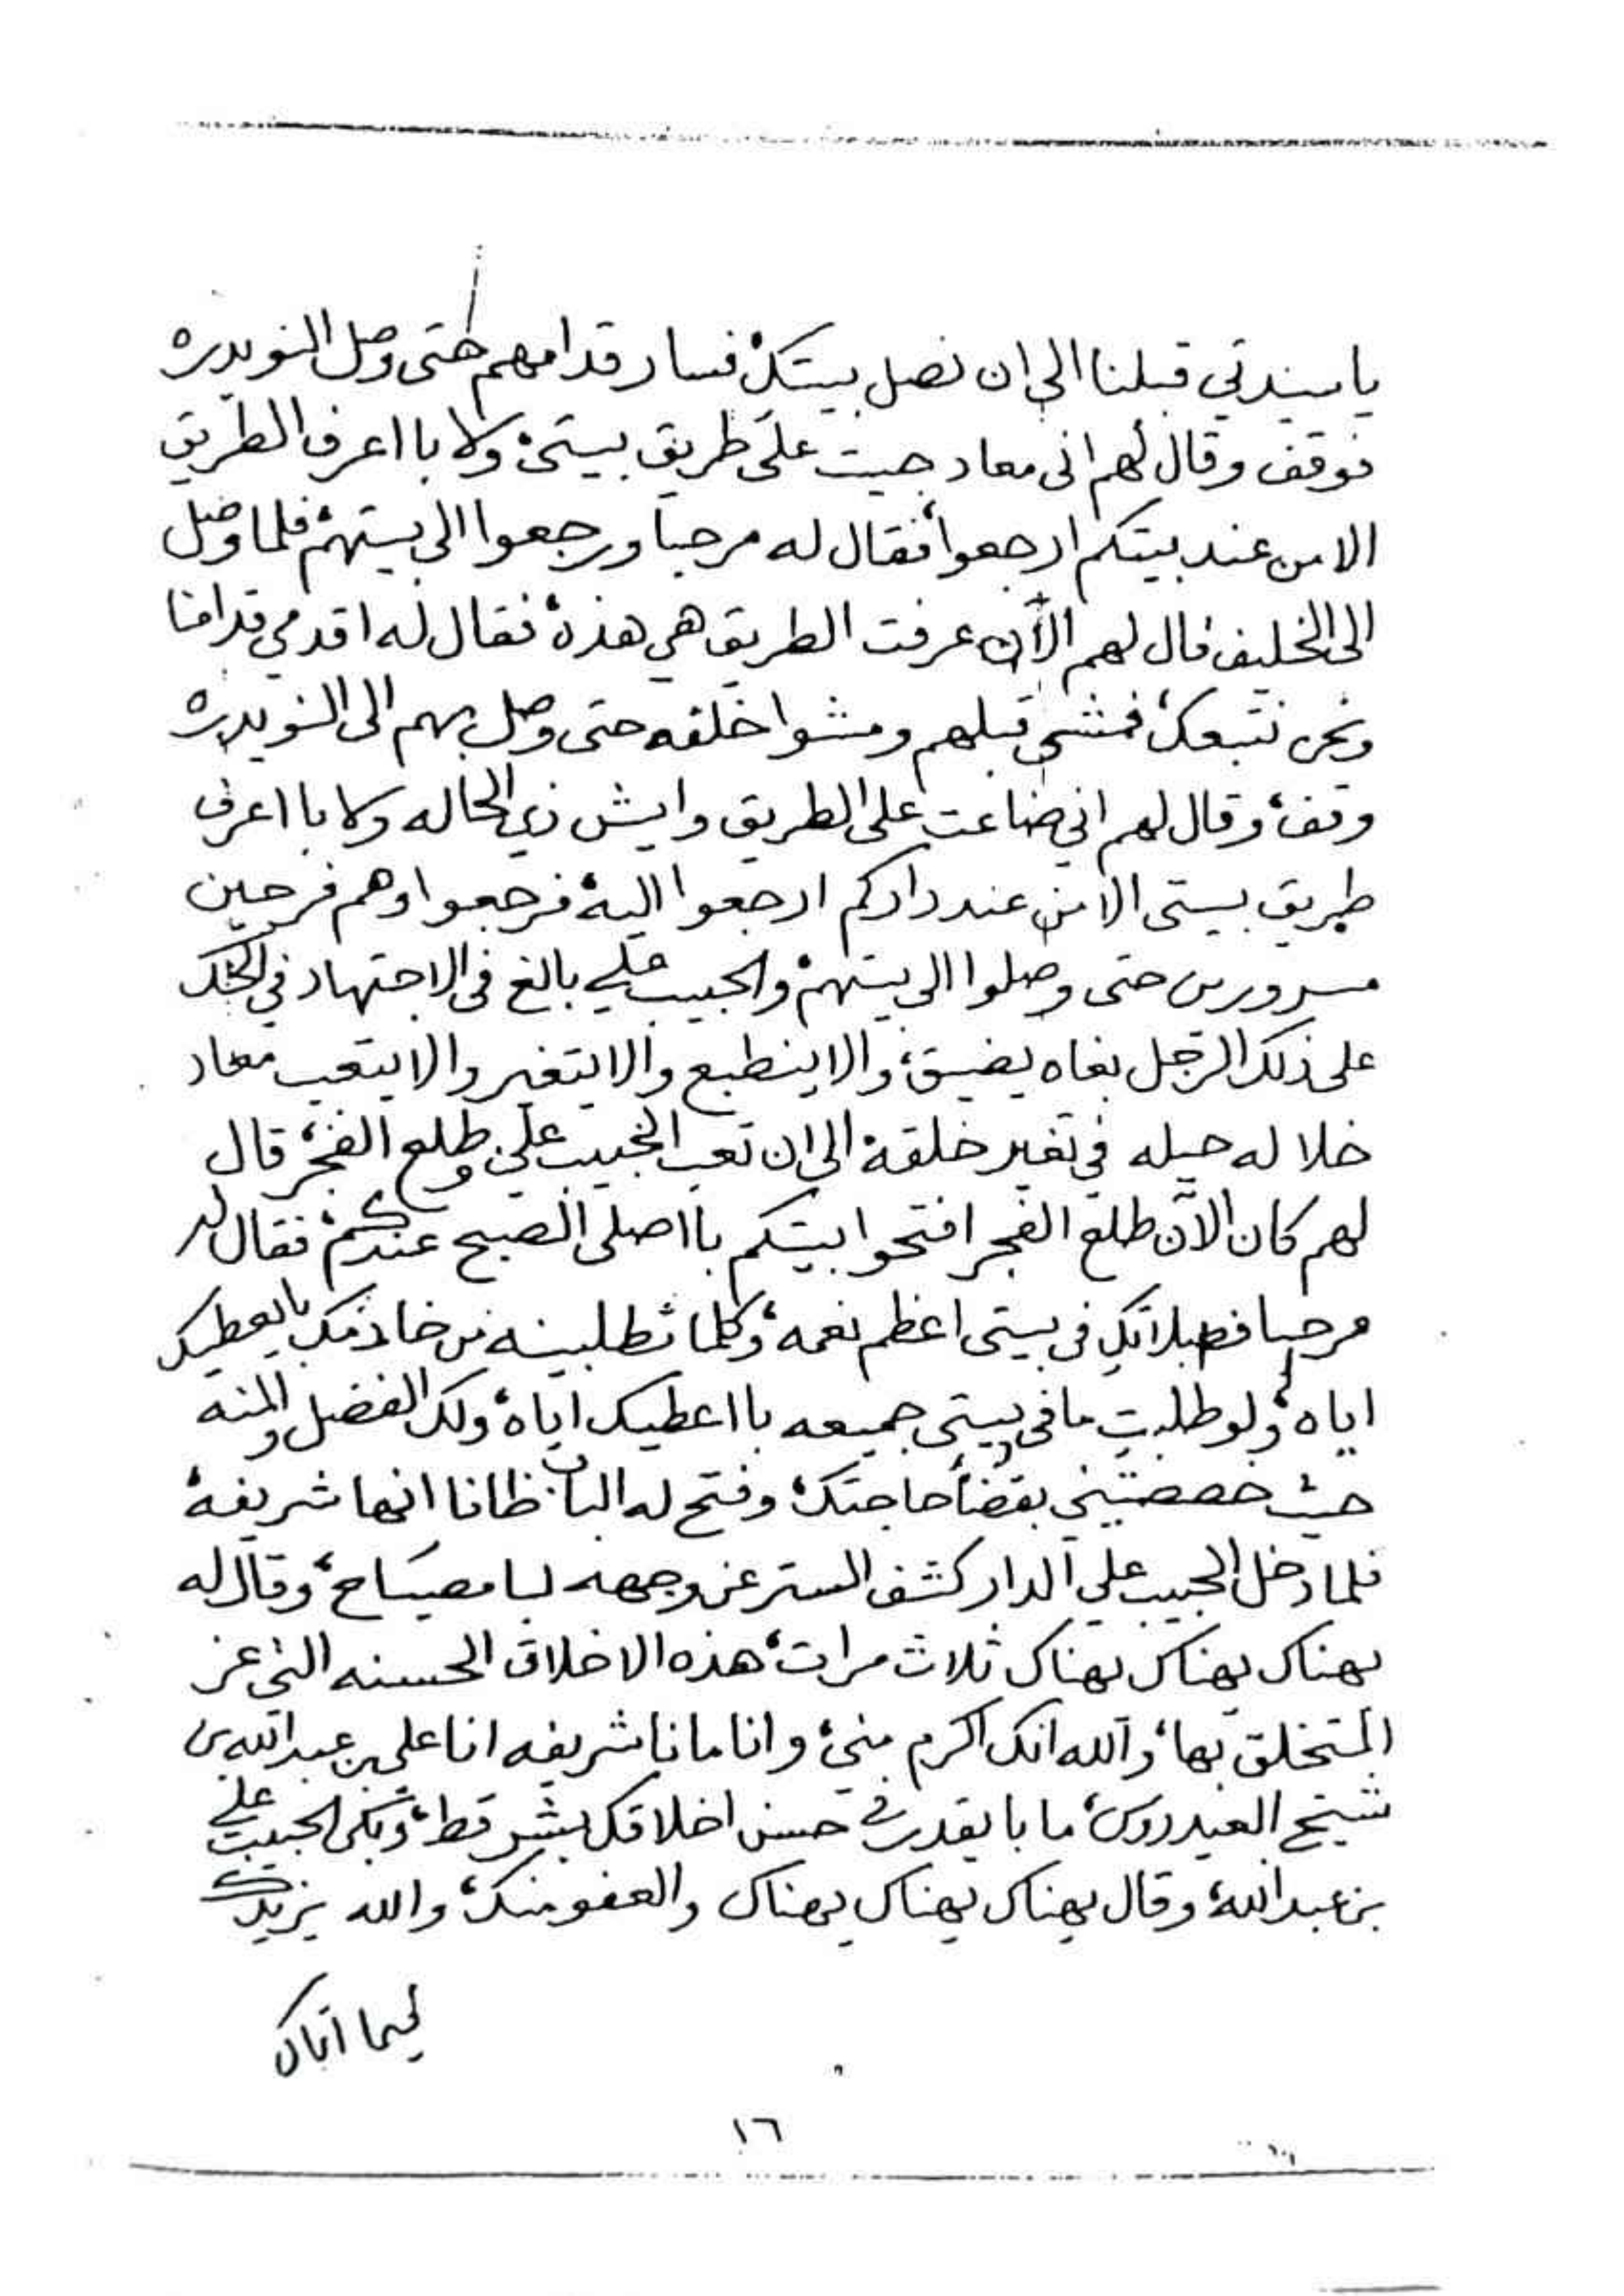 يا سيدتي قبلنا الى ان نصل بيتك، فسار قدامهم حتى وصل النويدره
فوقف وقال لهم انى معاد جيت على طريق بيتى، ولا با اعرف الطريق
الا من عند بيتكم ارجعوا، فقال له مرحبا ورجعوا الى بيتهم، فلما وصل
الى الخليف قال لهم الآن عرفت الطريق هي هذه، فقال له اقدمي قدامنا
ونحن نتبعك، فمشى قبلهم ومشوا خلفه حتى وصل بهم الى النويدره
وقف، وقال لهم اني ضاعت على الطريق وايش ذي الحاله ولا با اعرف
طريق بيتى الا من عند داركم ارجعوا اليه، فرجعوا وهم فرحين
مسرورين حتى وصلوا الى بيتهم، والحبيب علي بالغ فى الاجتهاد في
على ذلك الرجل بغاه يضيق، والا ينطبع والا يتغير والا يتعب معاد
خلا له حيله في تغير خلقه، الى ان تعب الحبيب علي وطلع الفجر، قال
لهم كان الآن طلع الفجر افتحوا بيتكم با اصلى الصبح عندكم، فقال له
مرحبا فصلاتكِ فى بيتى اعظم نعمه، وكلما تطلبينه من خادمك با يعطيك
اياه، ولو طلبتِ ما فى بيتى جميعه با اعطيك اياه، ولك الفضل والمنه
حيث خصصتيني بقضأ حاجتك، وفتح له الباب ظانا انها شريفة
فلما دخل الحبيب علي الدار كشف الستر عن وجهه لـسا مصيـاح، وقال له
يهناك يهناك يهناك ثلاث مرات، هذه الاخلاق الحسنه التي عز
المتخلق بها، والله انك اكرم مني، وانا مانا شريفه انا علي بن عبدالله بن
شيخ العيدروس، ما با يقدر في حسن اخلاقك بشر قط، وبكى الحبيب علي
بن عبدالله، وقال يهناك يهناك يهناك والعفو منك، والله يزيدك
فيما اتاك
١٦